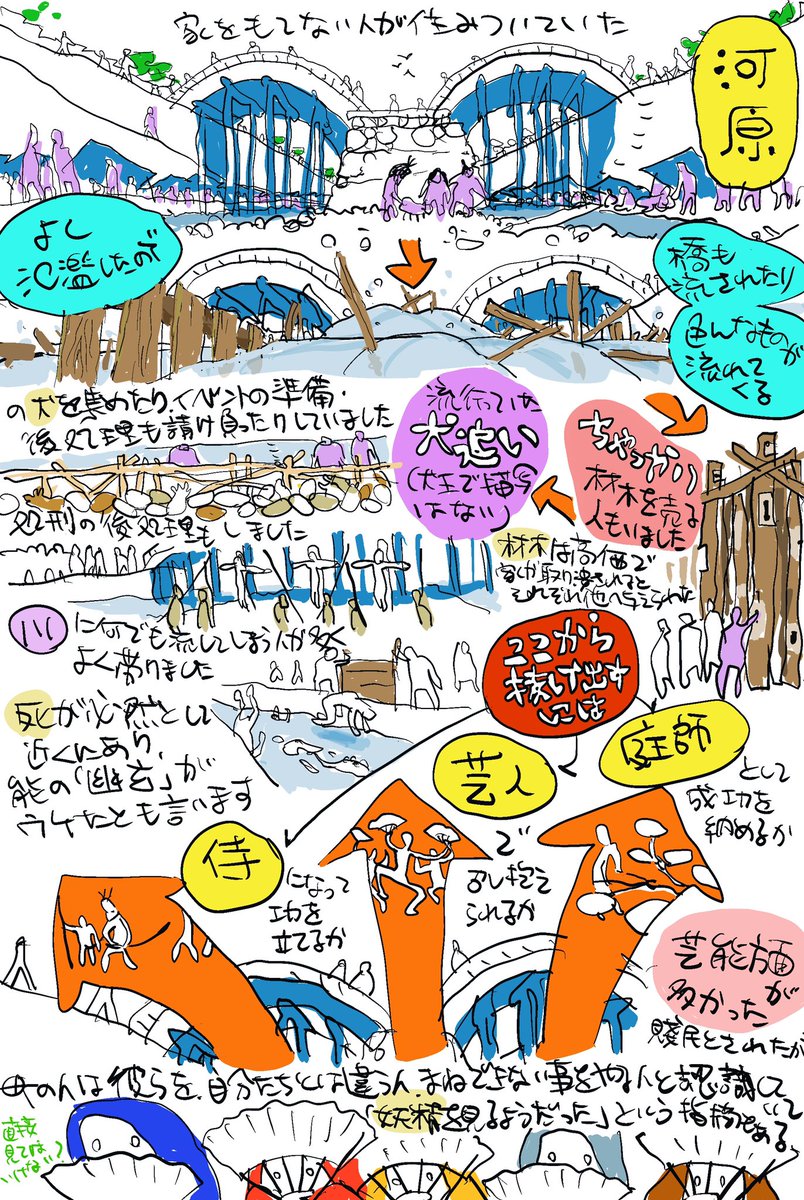 家をもてない人が住みついていた
河原
よく
氾濫したので
橋も
流されたり
色んなものが
流れて
くる
ちゃっかり
材木を売る
人もいました
流行っていた
犬追い
(犬王で描写
はない)
の犬を集めたり、イベントの準備・
後処理も請け負ったりしていました
処刑の後処理もしました
材木は高価で
家が取り潰されると
それぞれ他へ与えられた
川
に何でも流してしまう人が多く
よく滞りました
死が必然として
近くにあり、
能の「幽玄」が
ウケたとも言います
ここから
抜け出す
には
侍
になって
功を
立てるか
芸人
で
召し抱え
られるか
庭師
として
成功を
納めるか
芸能方面が
多かった
賤民とされたが
は彼らを、自分たちとは違う人、まねできない事をやる人と認識して
いて
「妖精を見るようだった」という指摘もある
直接
見ては
いけない